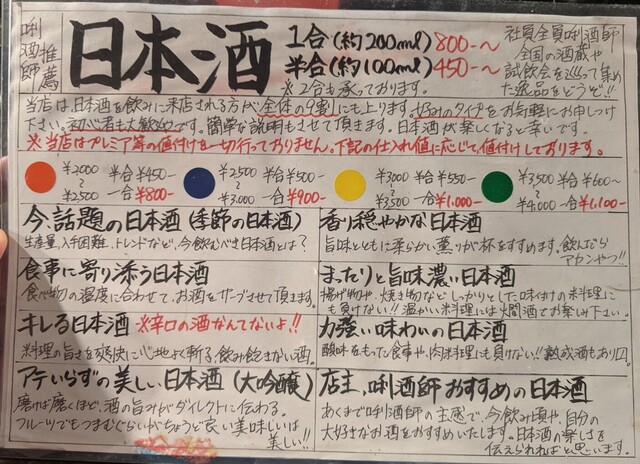 唎酒師推薦
日本酒
1合(約200ml)800-~
半合(約100ml)450-~
※2合も承っております。
社員全員唎酒師
全国の酒蔵や
試飲会を巡って集め
た逸品をどうぞ!!
当店は、日本酒を飲みに来店される方が、全体の9割にも上ります。好みのタイプをお気軽にお申しつけ
下さい。初心者も大歓迎です。簡単な説明もさせて頂きます。日本酒が楽しくなると幸いです。
※当店はプレミア等の値付けを一切行っておりません。下記の仕入れ値に応じて、値付けしております。
¥2000~¥2500 半合¥450- 一合¥800-
¥2500~¥3.000 半合¥500- 一合¥900-
¥3000~¥3500 半合¥550- 一合¥1.000-
¥3,500~¥4,000 半合¥600~ 一合¥1,100-
今、話題の日本酒(季節の日本酒)
生産量、入手困難、トレンドなど、今飲むべき日本酒とは?
香り穏やかな日本酒
旨味とともに柔らかい薫りが杯をすすめます。飲んだら
アカンやつ!!
食事に寄り添う日本酒
食べ物の温度に合わせて、お酒をサーブさせて頂きます。
まったりと旨味濃い日本酒
揚げ物や、焼き物など しっかりとした味付けの料理に
も負けない!! 温かい料理には燗酒でお楽しみ下さい。
キレる日本酒 ※辛口の酒なんてないよ!!
料理の旨さを爽快に心地よく斬る、飲み飽きない酒。
力強い味わいの日本酒
酸味をもった食事や、肉料理にも負けない!! 熟成酒もあり
アテいらずの美しい日本酒(大吟醸)
磨けば磨くほど、酒の旨みがダイレクトに伝わる。
フルーツでもつまむぐらいがちょうど良い美味しいは
美しい!!
店主、唎酒師おすすめの日本酒
あくまで唎酒師の主感で、今飲み頃や、自分の
大好きなお酒をおすすめいたします。日本酒の楽しさを
伝えられればと思います。